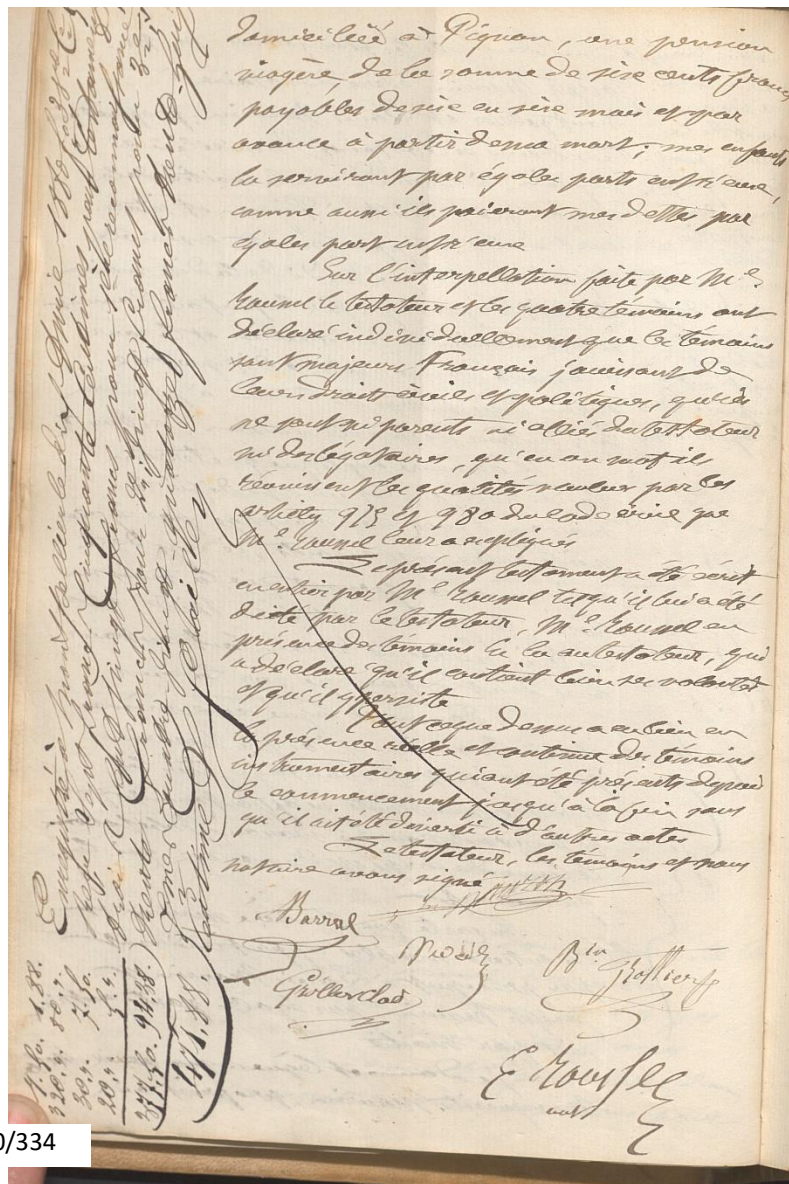 domiciliée à Pignan, une pension
viagère de la somme de six cents francs
payables de six en six mois et par
avance à partir de ma mort; mes enfants
la serviront par égales parts entr'eux,
comme aussi ils paieront mes dettes par
égales part entr'eux
Sur l'interpellation faite par Me
Roussel le testateur et les quatre témoins ont
déclaré individuellement que les témoins
sont majeurs Français jouissant de
leurs droits civils et politiques, qu'ils
ne sont ni parents ni alliés du testateur
ni des légataires, qu'en un mot ils
réunissent les qualités voulues par les
articles 975 et 980 du Code civil que
Me Roussel leur a expliqués
Le présent testament a été écrit
en entier par Me Roussel tel qu'il lui a été
dicté par le testateur, Me Roussel en
présence des témoins l'a lu au testateur, qui
a déclaré qu'il contient bien ses volontés
et qu'il y persiste
Tout ce que dessus a eu lieu en
la présence réelle et continue des témoins
instrumentaires qui ont été présents depuis
le commencement jusqu'à la fin sans
qu'il ait été diverti à d'autres actes
Le testateur, les témoins et nous
notaire avons signé
Barral
Bin
E Roussel
not
Enregistré à Montpellier le dix
reçu sept francs cinquante centimes pour
vingt francs pour
francs pour
quatorze francs trente huit
centimes
7.50. 1.88.
320.". 80.".
30.". 7.50.
20.". 5.".
377.50. 94.38.
471.88.
0/334